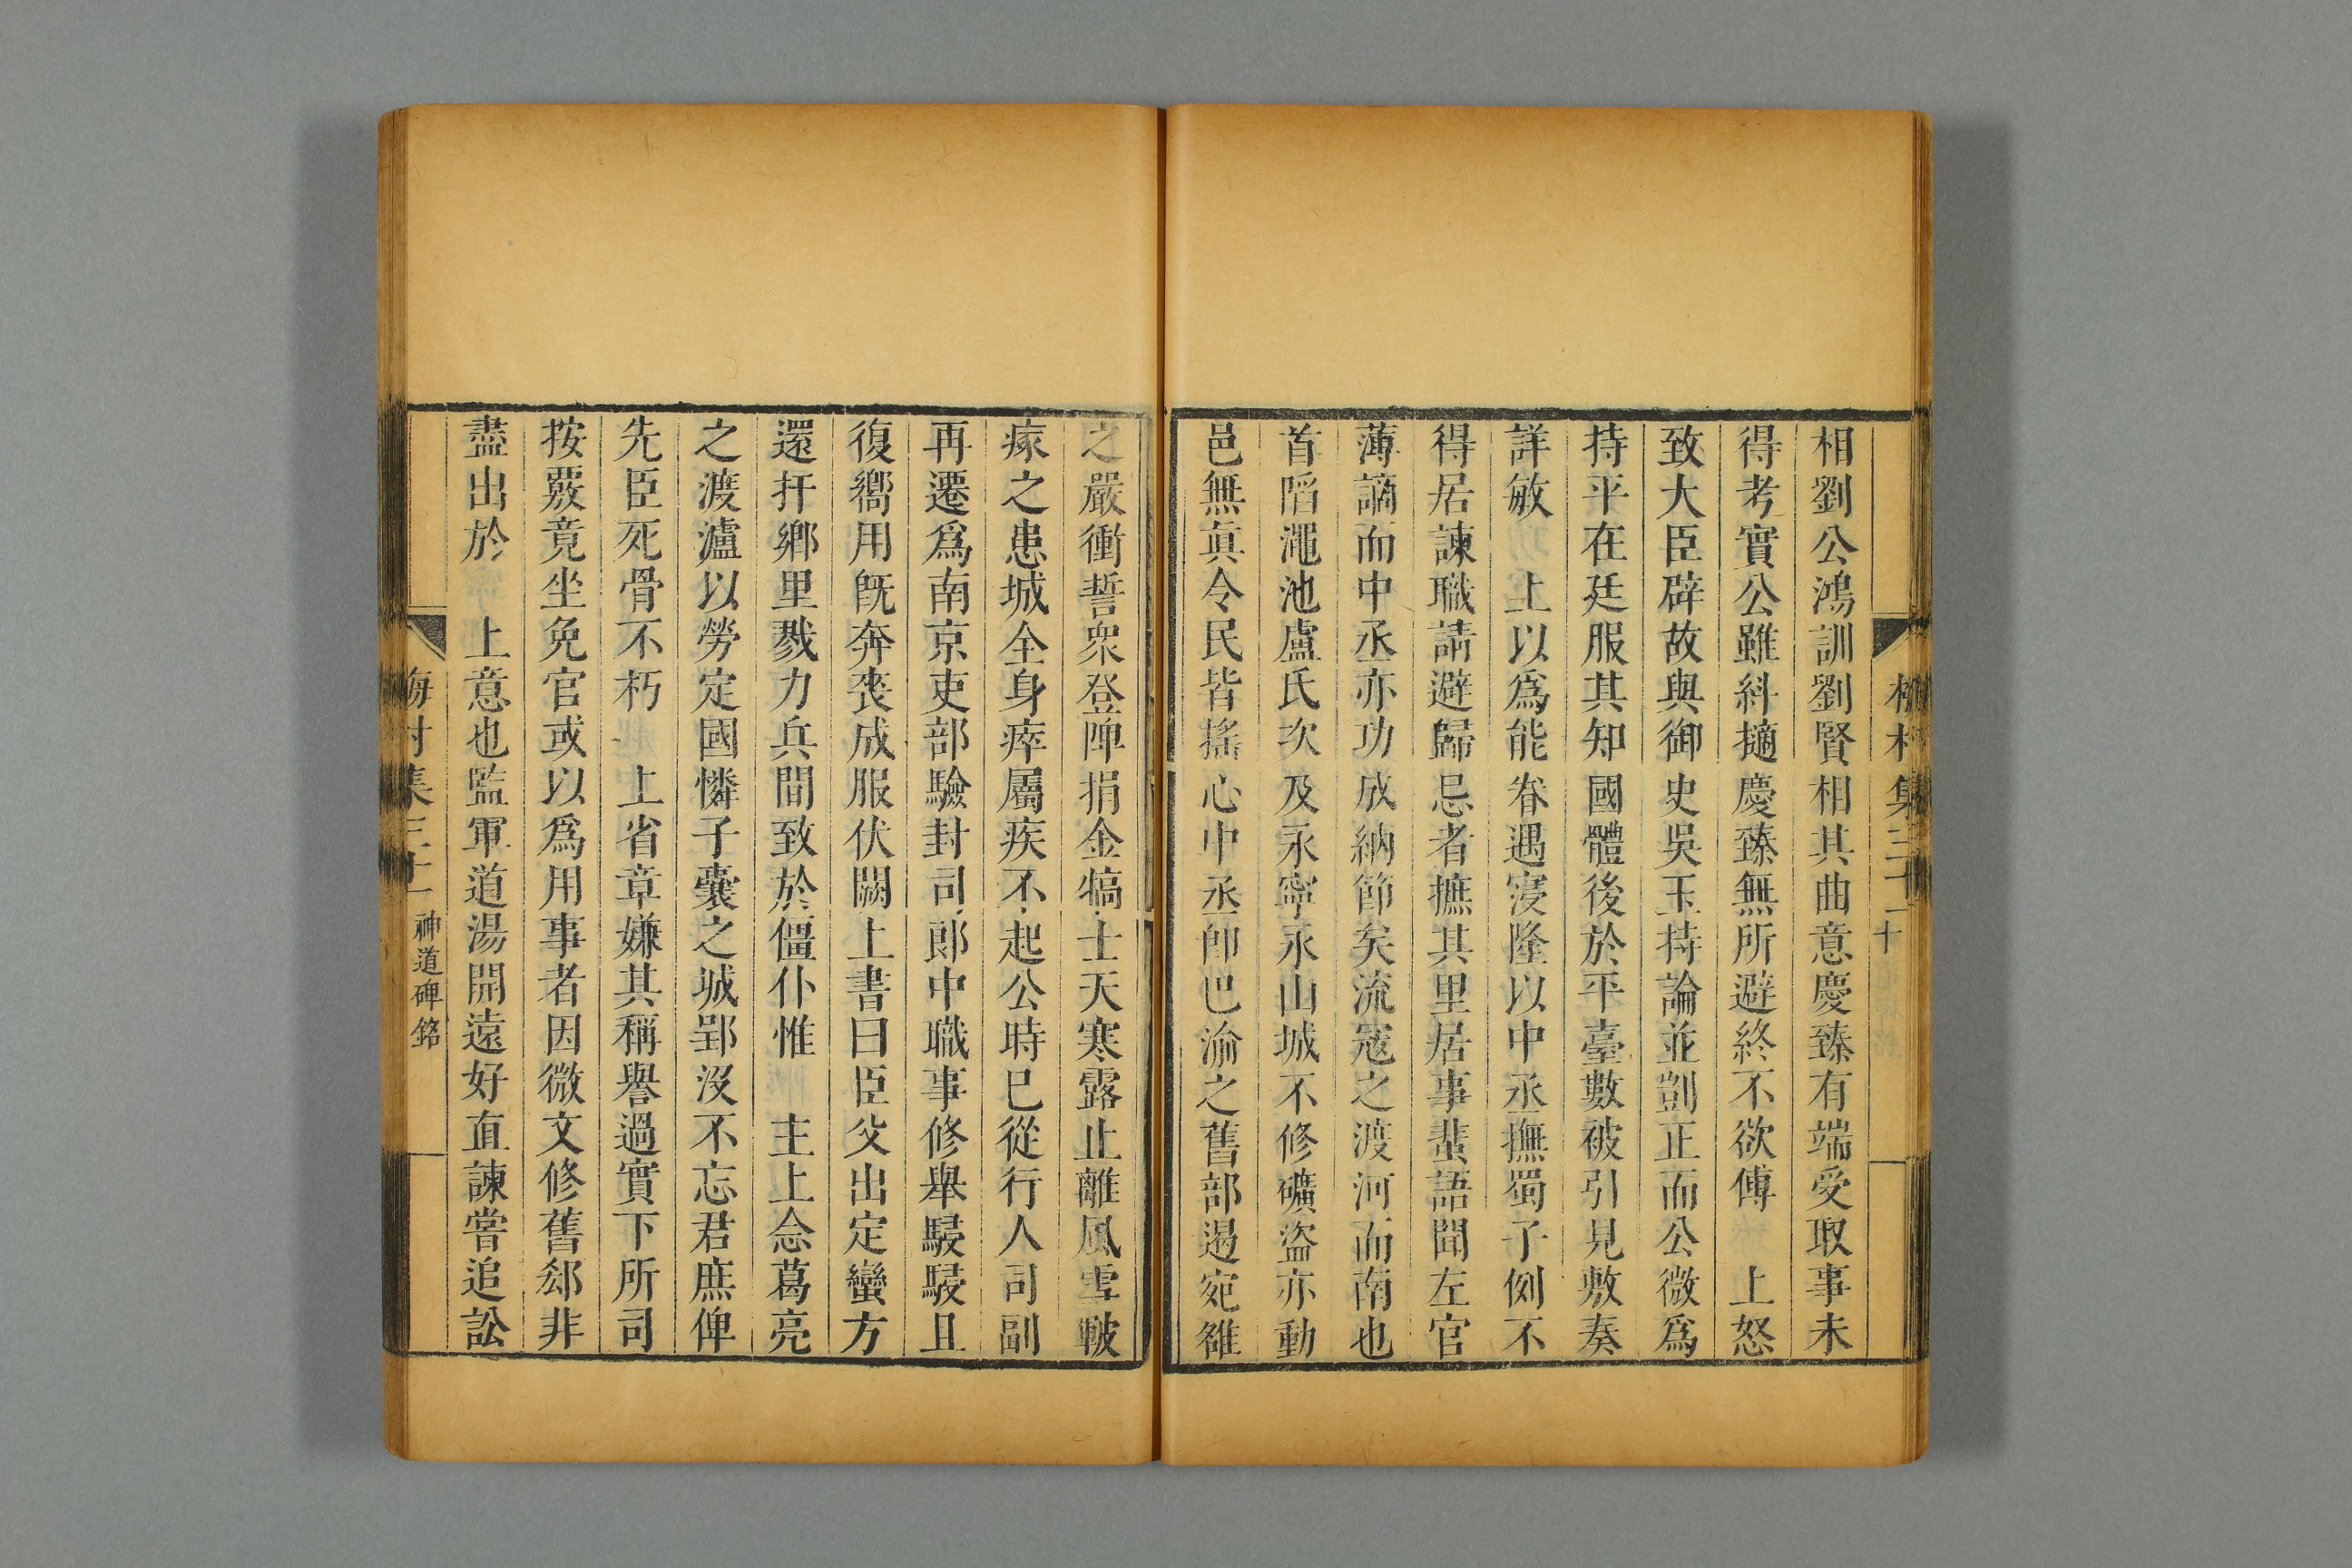 相劉公鴻訓劉賢相其曲意慶臻有端受取事未
得考實公雖糾擿慶臻無所避終不欲傅 上怒
致大臣辟故與御史吳玉持論並剴正而公微爲
持平在廷服其知國體後於平臺數被引見敷奏
詳敏 上以爲能眷遇寖隆以中丞撫蜀子例不
得居諫職請避歸忌者摭其里居事蜚語聞左官
薄謫而中丞亦功成納節矣流寇之渡河而南也
首陷澠池盧氏次及永寧永山城不修礦盜亦動
邑無眞令民皆搖心中丞卽巴渝之舊部遏宛雒
之嚴衝誓衆登陴捐金犒士天寒露止離風雪皸
瘃之患城全身瘁屬疾不起公時已從行人司副
再遷爲南京吏部驗封司郎中職事修舉駸駸且
復嚮用旣奔喪成服伏闕上書曰臣父出定蠻方
還扞鄉里戮力兵間致於僵仆惟 主上念葛亮
之渡瀘以勞定國憐子囊之城郢沒不忘君庶俾
先臣死骨不朽 上省章嫌其稱譽過實下所司
按覈竟坐免官或以爲用事者因微文修舊郄非
盡出於 上意也監軍道湯開遠好直諫嘗追訟
梅村集三十一 神道碑銘
梅村集三十一 十